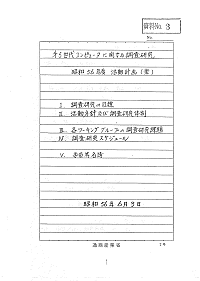 資料No. 3
No.
第5世代コンピュータに関する調査研究
昭和56年度 活動計画(案)
I. 調査研究の目標
II. 活動方針及び調査研究体制
III. 各ワーキンググループの調査研究課題
IV. 調査研究スケジュール
V. 委員名簿
昭和56年6月3日
通商産業省
1